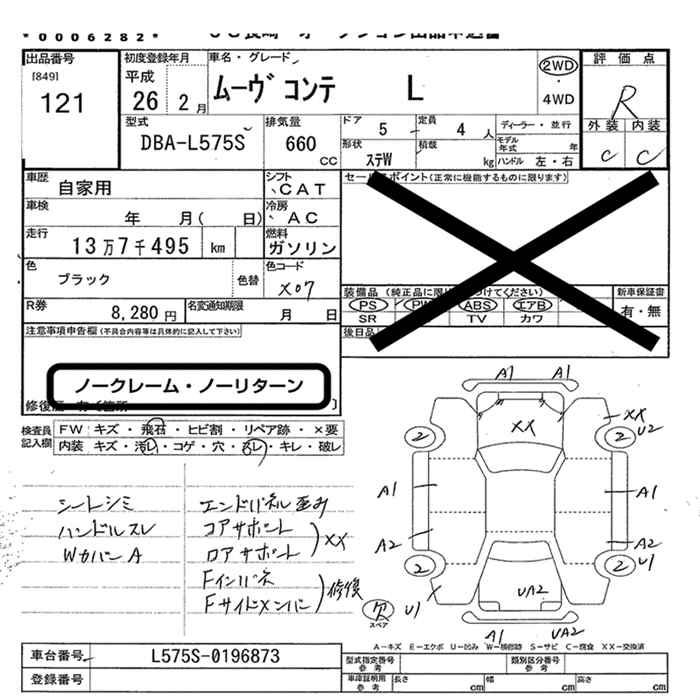 *0006282*
出品番号
[849]
121
初度登録年月
平成
26 2月
車名・グレード
ムーヴ コンテ L
2WD
・
4WD
評価点
R
外装 内装
C C
型式
DBA-L575S
排気量
660
CC
ドア
5
定員
4人
形状
ステW
積載
kg
ディーラー・並行
モデル年式 年
ハンドル 左・右
車歴
自家用
シフト
CAT
車検
年 月( 日)
冷房
AC
走行
13万7千495 km
燃料
ガソリン
色
ブラック
色替
色コード
X07
R券
8,280円
名変通知期限
月 日
セールスポイント(正常に機能するものに限ります)
装備品
PS PW ABS エアB
SR TV カワ
新車保証書
有・無
後日品
注意事項申告欄(不具合内容等は具体的に記入して下さい)
ノークレーム・ノーリターン
検査員記入欄
FW キズ・飛石・ヒビ割・リペア跡・×要
内装 キズ・汚レ・コゲ・穴・スレ・キレ・破レ
シートシミ
ハンドルスレ
WカバーA
エンドパネル歪み
コアサポート
ロアサポート
XX
Fインパネ
Fサイドメンバー
修復
A1 A1
XX
XX
2
2
U2
A1
A1
A2
A2
2
2
U1
U1
UA2
欠
スペア
A1 UA2
A-キズ E-エクボ U-凹み W-補修跡 S-サビ C-腐食 XX-交換済
車台番号
L575S-0196873
登録番号
型式指定番号
参考
類別区分番号
参考
車庫証明用
参考
長さ cm
幅 cm
高さ cm